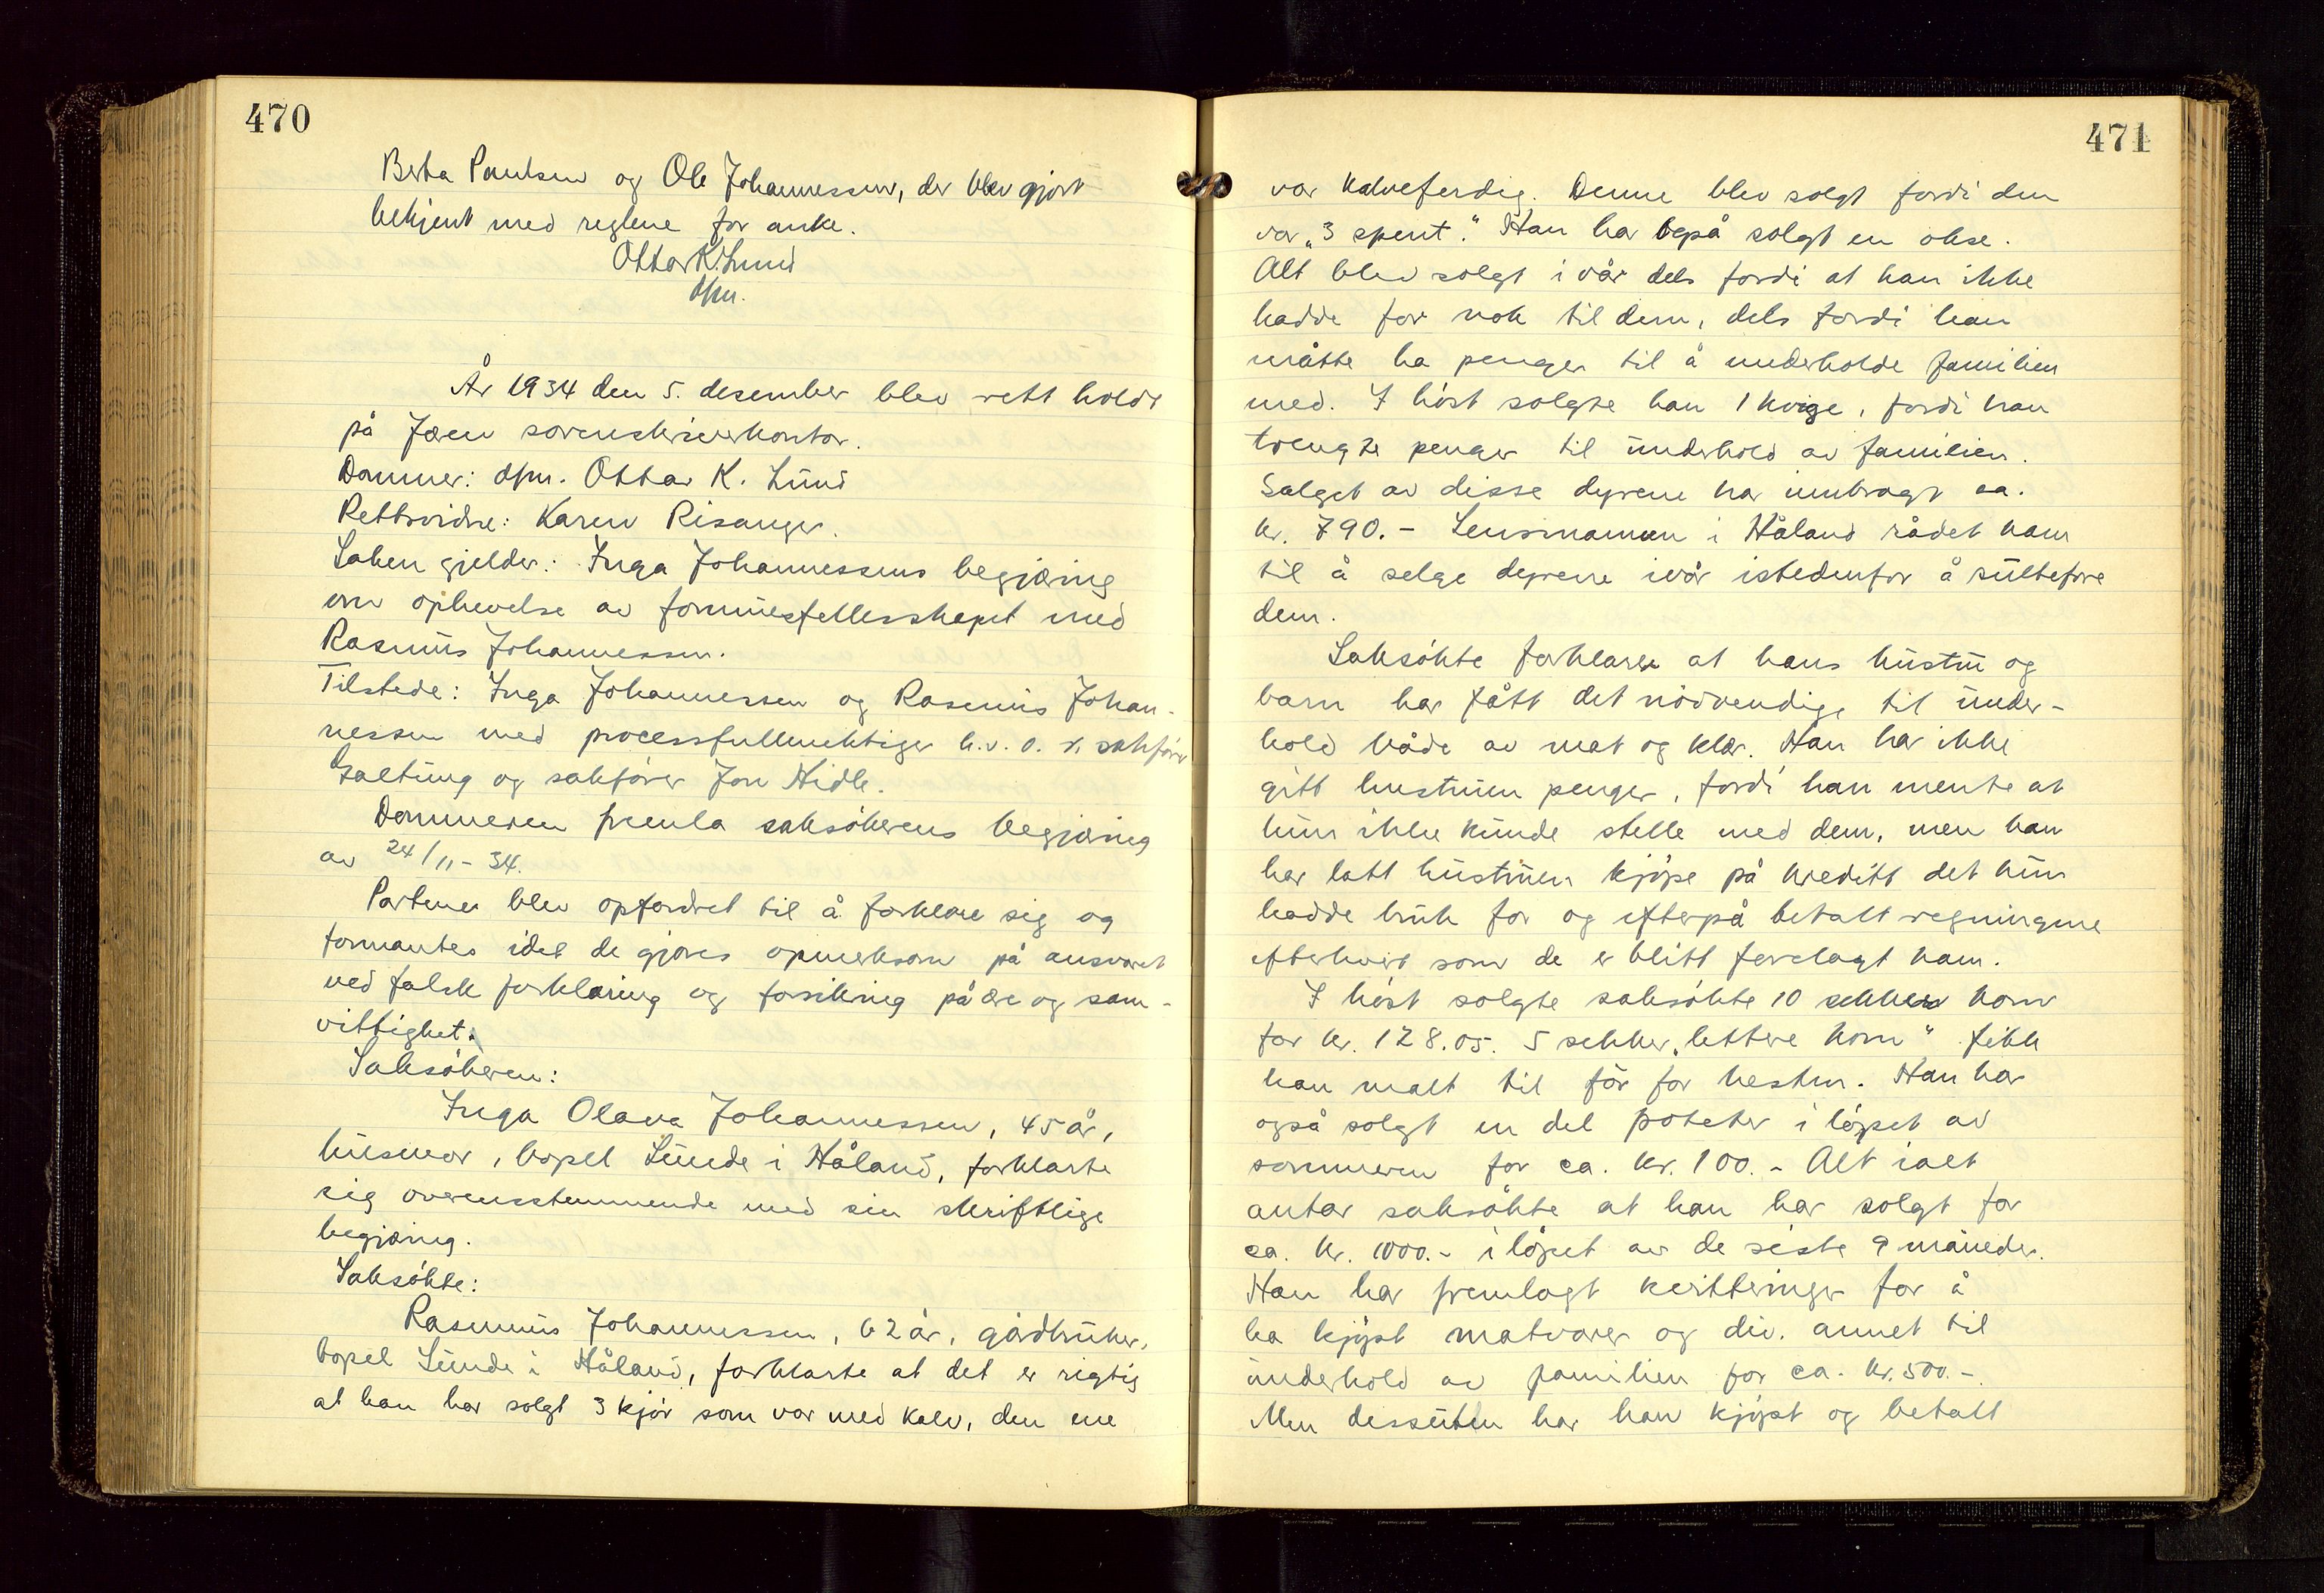 470
Berta Paulsen og Ole Johannessen, der blev gjort
bekjent med reglene for anke.
Ottar K. Lund
dfm.
År 1934 den 5. desember blev rett holdt
på Jæren sorenskriverkontor.
Dommer: dfm. Ottar K. Lund
Rettsvidne: Karen Risanger.
Saken gjelder: Inga Johannessens begjæring
om ophevelse av formuesfellesskapet med
Rasmus Johannessen.
Tilstede: Inga Johannessen og Rasmus Johan-
nessen med processfullmektiger h.v. o. r. sakfører
Galtung og sakfører Jon Hidle.
Dommeren fremla saksøkerens begjæring
av 24/11-34.
Partene blev opfordret til å forklare sig og
formantes idet de gjøres opmerksom på ansvaret
ved falsk forklaring og forsikring på ære og sam-
vittighet.
Saksøkeren:
Inga Olava Johannessen, 45 år,
husmor, bopel Lunde i Håland, forklarte
sig overensstemmende med sin skriftlige
begjæring.
Saksøkte:
Rasmus Johannessen, 62 år, gårdbruker,
bopel Lunde i Håland, forklarte at det er rigtig
at han har solgt 3 kjør som var med kalv, den ene
471
var kalveferdig. Denne blev solgt fordi den
var "3 spent." Han har også solgt en okse.
Alt blev solgt i vår dels fordi at han ikke
hadde for nok til dem, dels fordi han
måtte ha penger til å underholde familien
med. I høst solgte han 1 kvige, fordi han
trengte penger til underhold av familien.
Salget av disse dyrene har innbragt ca.
kr. 790.- Lensmannen i Håland rådet ham
til å selge dyrene ivår istedenfor å sultefore
dem.
Saksøkte forklarer at hans hustru og
barn har fått det nødvendige til under-
hold både av mat og klær. Han har ikke
gitt hustruen penger, fordi han mente at
hun ikke kunde stelle med dem, men han
har latt hustruen kjøpe på kreditt det hun
hadde bruk for og efterpå betalt regningene
efterhvert som de er blitt forelagt ham.
I høst solgte saksøkte 10 sekker korn
for kr. 128.05. 5 sekker "lettere korn" fikk
han malt til fôr for hesten. Han har
også solgt en del poteter i løpet av
sommeren for ca. kr. 100.- Alt ialt
antar saksøkte at han har solgt for
ca. kr. 1000.- i løpet av de siste 9 måneder.
Han har fremlagt kvitteringer for å
ha kjøpt matvarer og div. annet til
underhold av familien for ca. kr. 500.-
Men dessuten har han kjøpt og betalt